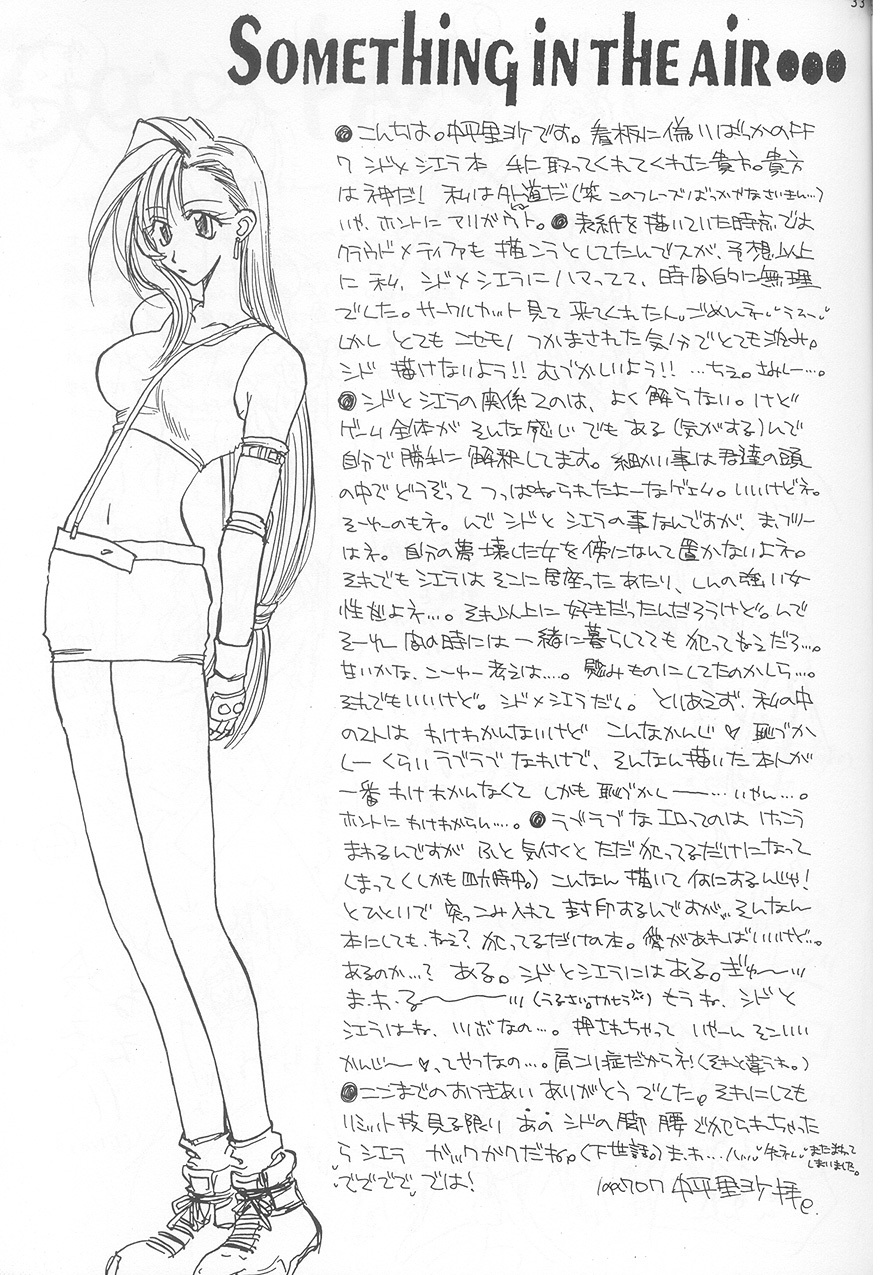 33
SOMETHING IN THE AIR●●●
●こんちは。中平里沙です。看板に偽いばっかのFF
7 シド×シエラ本 手に取ってくれてくれた貴方。貴方
は神だ! 私は外道だ(笑 このフレーズばっかかなさいきん…)
いや、ホントにアリガウト。●表紙を描いていた時点では
クラウド×ティファも描こうとしてたんでスが、予想以上
に私、シド×シエラにハマってて、時間的に無理
でした。サークルカット見て来てくれたん、ごめんネ
しかしとてもニセモノつかまされた気分でとても
シド 描けないよう!! むづかしいよう!! …ちえ。さみしー…。
●シドとシエラの関係ってのは、よく解らない。けど
ゲーム全体がそんな感じでもある(気がする)んで
自分で勝手に解釈してます。細かい事は君達の頭
の中でどうぞってつっぱねられたよーなゲエム。いいけどネ。
そーゆのもネ。んでシドとシエラの事なんですが、ま、フツー
はネ。自分の夢壊した女を傍になんて置かないよネ。
それでもシエラはそこに居座ったあたり、しんの強い女
性だよネ…。それ以上に好きだったんだろうけど。んで
そーゆー間の時には一緒に暮らしてても犯ってもえだろ…。
甘いかな、こーゆー考えは…。慰みものにしてたのかしら…。
それでもいいけど。シド×シエラだし。とりあえず、私の中
のストは わけわかんないけど こんなかんじ♡ 恥づか
しー くらいラブラブなわけで、そんなん描いた本人が
一番わけわかんなくて しかも恥づかしー――… いやん…。
ホントにわけわからん…。●ラブラブなエロってのはけっこう
まわるんですが ふと気付くと ただ犯ってるだけになって
しまってく(しかも四六時中。)こんなん描いて何にするんじゃ!
とひといで突っこみ入れて封印するんですが、そんなん
本にしても、ねえ? 犯ってるだけの本。愛があればいいけど…。
あるのか…? ある。シドとシエラにはある。ぎゅ〜
ま・わ・る〜 (うるさい) もうね、シドと
シエラはね、ツボなの…。押されちゃって いやーん そこいい
かんじ〜♡、ってやつなの…。肩コリ症だからネ!(それと違うわ。)
●ここまでのおつきあい ありがとう でした。それにしても
リミット技見る限り あの シドの脚 腰でかせられちゃった
ら シエラ ガックガクだね。(下世話。)ま、わ… 失ネし
またまわって
しまいました。
でででで では!
199707 中平里沙拝